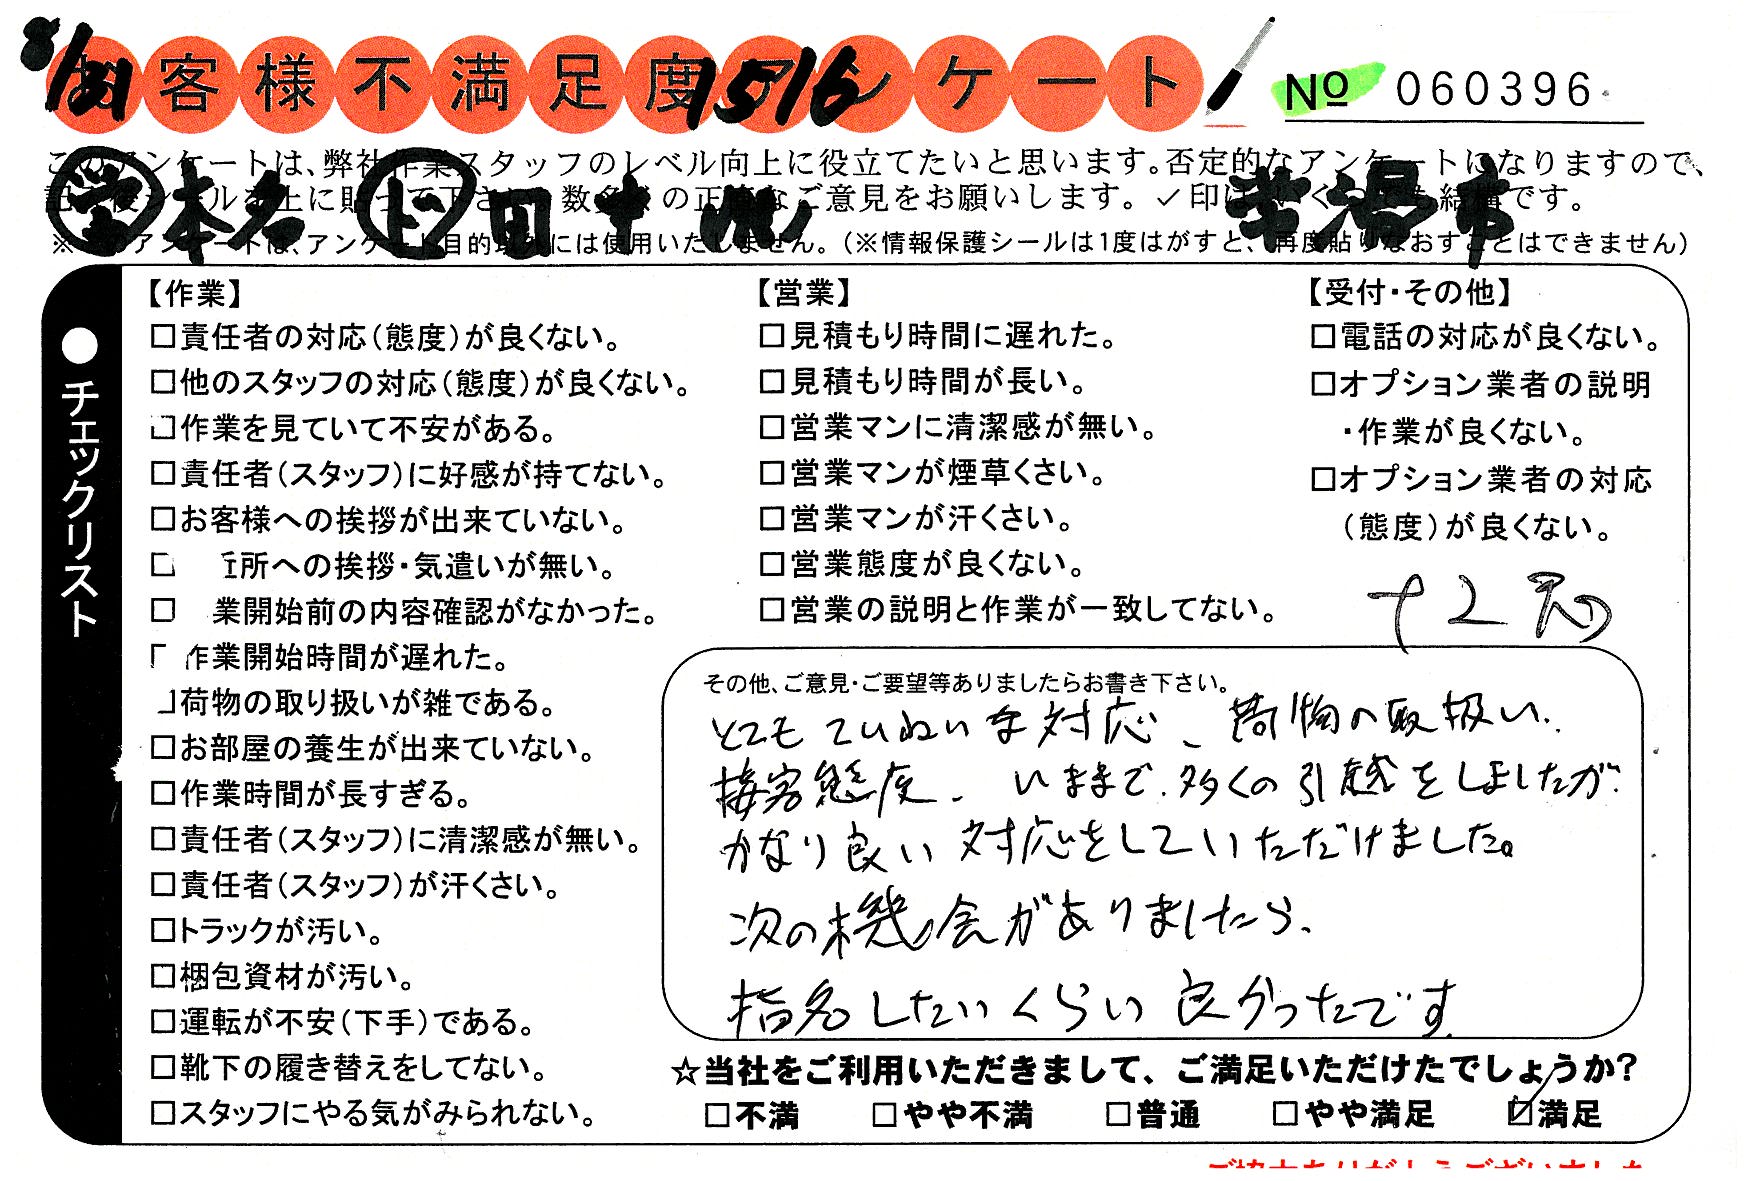 8/31
お客様不満足度アンケート
1516
No 060396
このアンケートは、弊社作業スタッフのレベル向上に役立てたいと思います。否定的なアンケートになりますので、
数多くの正直なご意見をお願いします。✓印はいくつでも結構です。
※このアンケートは、アンケート目的以外には使用いたしません。（※情報保護シールは1度はがすと、再度貼りなおすことはできません）
本名 ト 田中
市
●チェックリスト
【作業】
□責任者の対応（態度）が良くない。
□他のスタッフの対応（態度）が良くない。
□作業を見ていて不安がある。
□責任者（スタッフ）に好感が持てない。
□お客様への挨拶が出来ていない。
□ 所への挨拶・気遣いが無い。
□ 業開始前の内容確認がなかった。
□作業開始時間が遅れた。
□荷物の取り扱いが雑である。
□お部屋の養生が出来ていない。
□作業時間が長すぎる。
□責任者（スタッフ）に清潔感が無い。
□責任者（スタッフ）が汗くさい。
□トラックが汚い。
□梱包資材が汚い。
□運転が不安（下手）である。
□靴下の履き替えをしてない。
□スタッフにやる気がみられない。
【営業】
□見積もり時間に遅れた。
□見積もり時間が長い。
□営業マンに清潔感が無い。
□営業マンが煙草くさい。
□営業マンが汗くさい。
□営業態度が良くない。
□営業の説明と作業が一致してない。
【受付・その他】
□電話の対応が良くない。
□オプション業者の説明
・作業が良くない。
□オプション業者の対応
（態度）が良くない。
+2
その他、ご意見・ご要望等ありましたらお書き下さい。
とてもていねいな対応、荷物の取扱い、
接客態度、いままで、多くの引越をしましたが
かなり良い対応をしていただけました。
次の機会がありましたら、
指名したいくらい良かったです
☆当社をご利用いただきまして、ご満足いただけたでしょうか？
□不満 □やや不満 □普通 □やや満足 ☑満足
ご協力ありがとうございました